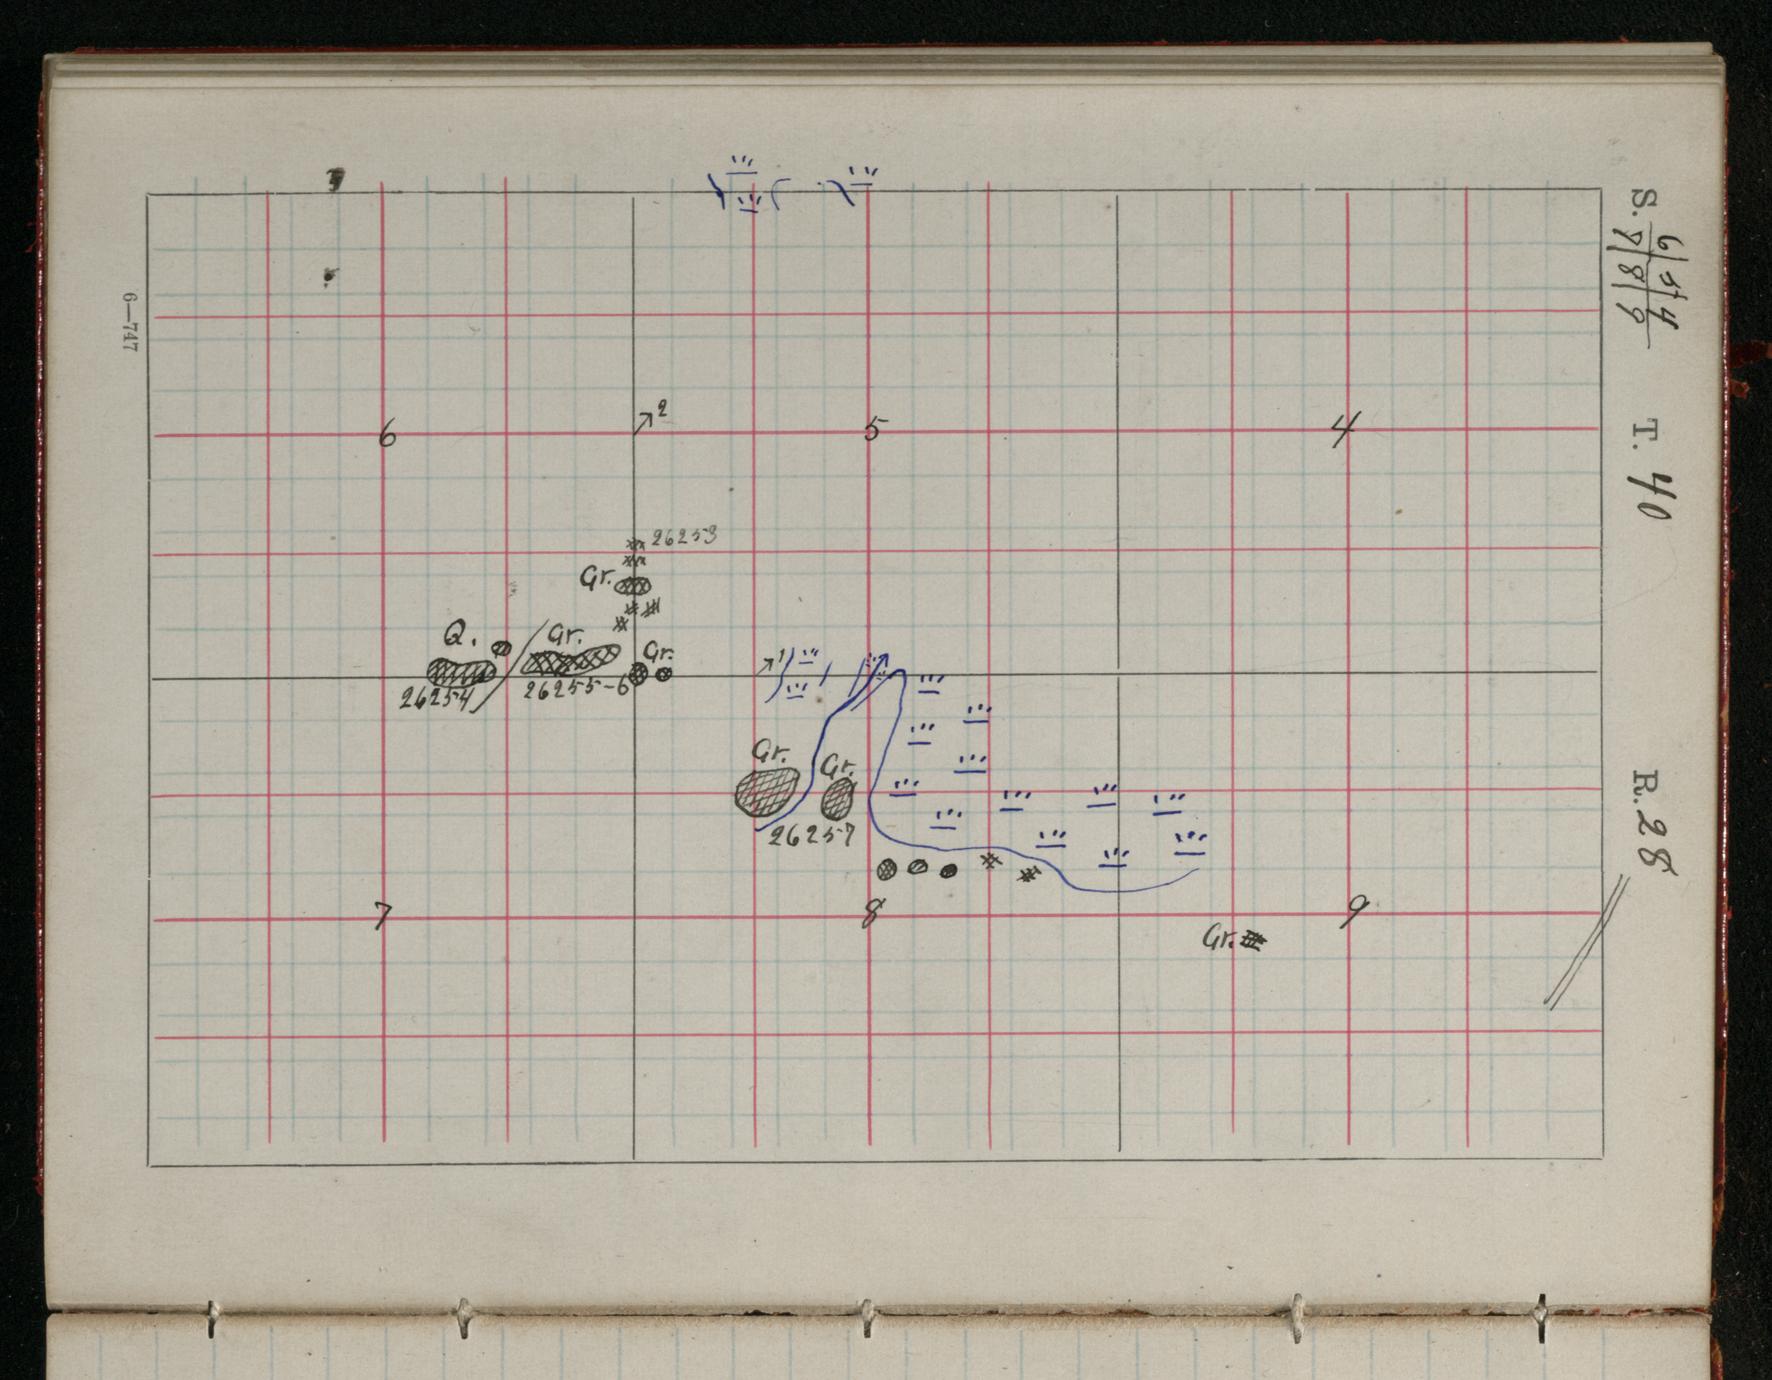 S. 6|5|4
7|8|9
T. 40
R. 28
6—747
2
6
5
4
26253
Gr.
Q.
Gr.
Gr.
26254
26255-6
1
Gr.
Gr.
26257
7
8
9
Gr.